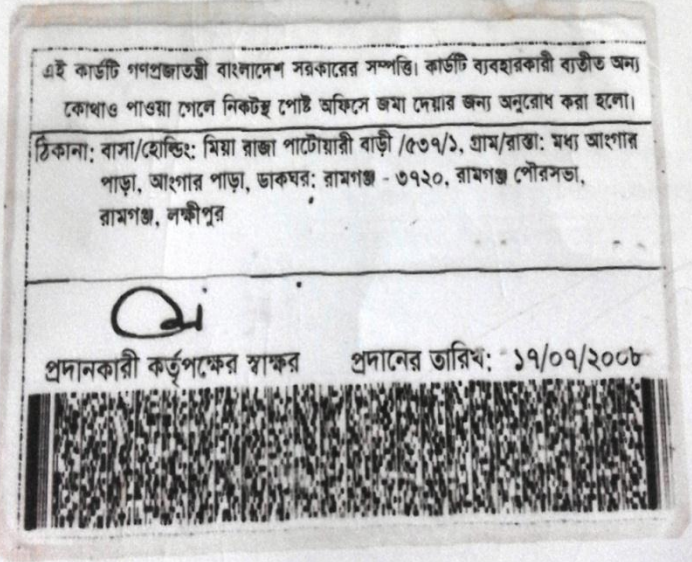 এই কার্ডটি গণপ্রজাতন্ত্রী বাংলাদেশ সরকারের সম্পত্তি। কার্ডটি ব্যবহারকারী ব্যতীত অন্য
কোথাও পাওয়া গেলে নিকটস্থ পোষ্ট অফিসে জমা দেয়ার জন্য অনুরোধ করা হলো।
ঠিকানা: বাসা/হোল্ডিং: মিয়া রাজা পাটোয়ারী বাড়ী /৫৩৭/১, গ্রাম/রাস্তা: মধ্য আংগার
পাড়া, আংগার পাড়া, ডাকঘর: রামগঞ্জ - ৩৭২০, রামগঞ্জ পৌরসভা,
রামগঞ্জ, লক্ষীপুর
প্রদানকারী কর্তৃপক্ষের স্বাক্ষর প্রদানের তারিখ: ১৭/০৭/২০০৮